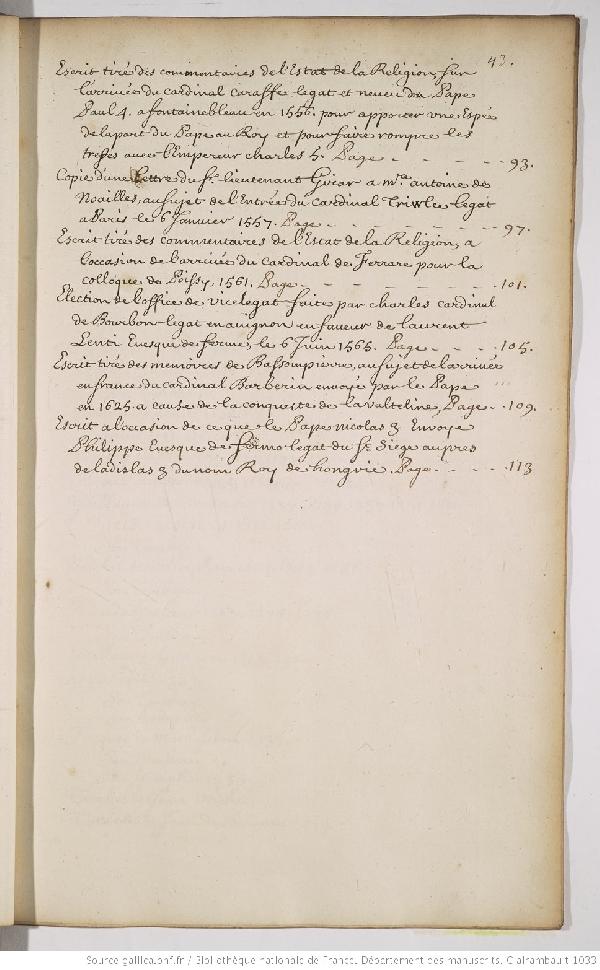 43.
Escrit tiré des commentaires de l'Estat de la Religion, sur
l'arrivée du Cardinal Caraffe legat et neveu du Pape
Paul 4. a fontainebleau en 1556. pour apporter une Espée
de la part du Pape au Roy et pour faire rompre les
trefes avec l'Empereur charles 5. Page - - - - - 93.
Copie d'une Lettre du Sr. lieutenant a Mre. antoine de
Noailles, au sujet de l'Entrée du Cardinal Trivulce legat
a Paris le 6 Janvier 1557. Page - - - - - 97.
Escrit tiré des commentaires de l'Estat de la Religion, a
l'occasion de l'arrivée du Cardinal de Ferrare pour la
colloque de Poissy, 1561. Page - - - - - 101.
Election de l'office de vicelegat faite par charles cardinal
de Bourbon legat en avignon en faveur de laurent
Lenti Evesque de fermo, le 6 Juin 1565. Page - - - 105.
Escrit tiré des memoires de Bassompierre, au sujet de l'arrivée
en france du Cardinal Barberin envoyé par le Pape
en 1625 a cause de la conqueste de la valteline, Page - 109.
Escrit a l'occasion de ce que le Pape nicolas 3 Envoye
Philippe Evesque de fermo legat du St. Siege aupres
de ladislas 3 du nom Roy de hongrie. Page - - - - 113
Source gallica.bnf.fr / Bibliothèque nationale de France. Département des manuscrits. Clairambault 1033